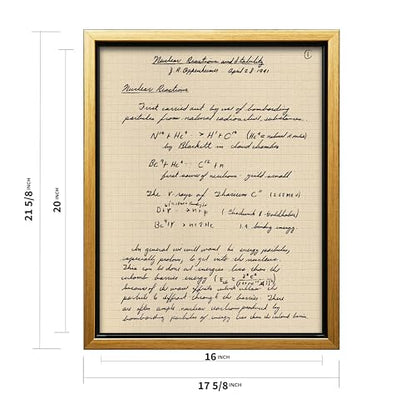 Nuclear Reactions and Stability
J. R. Oppenheimer April 28 1941
1
Nuclear Reactions
First carried out by use of bombarding
particles from natural radioactive substances.
by Blackett in cloud chamber
Be⁹ + He⁴ → C¹² + n
first source of neutrons - yield small
The γ rays of Thorium C"
(Chadwick & Goldhaber)
binding energy.
In general we will want to energy particles,
especially protons, to get into the nucleus.
This can be done at energies less than the
coulomb barrier energy
because of the wave effects which allow the
particle to diffract through the barrier. There
are often ample nuclear reactions produced by
bombarding particles of energy less than the coulomb barrier.
21 5/8 INCH
20 INCH
16 INCH
17 5/8 INCH